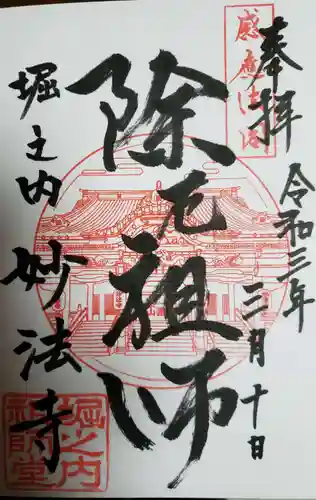 奉拝
令和三年
三月十日
除厄祖師
堀之内
妙法寺
感應法閣
堀之内
祖師堂